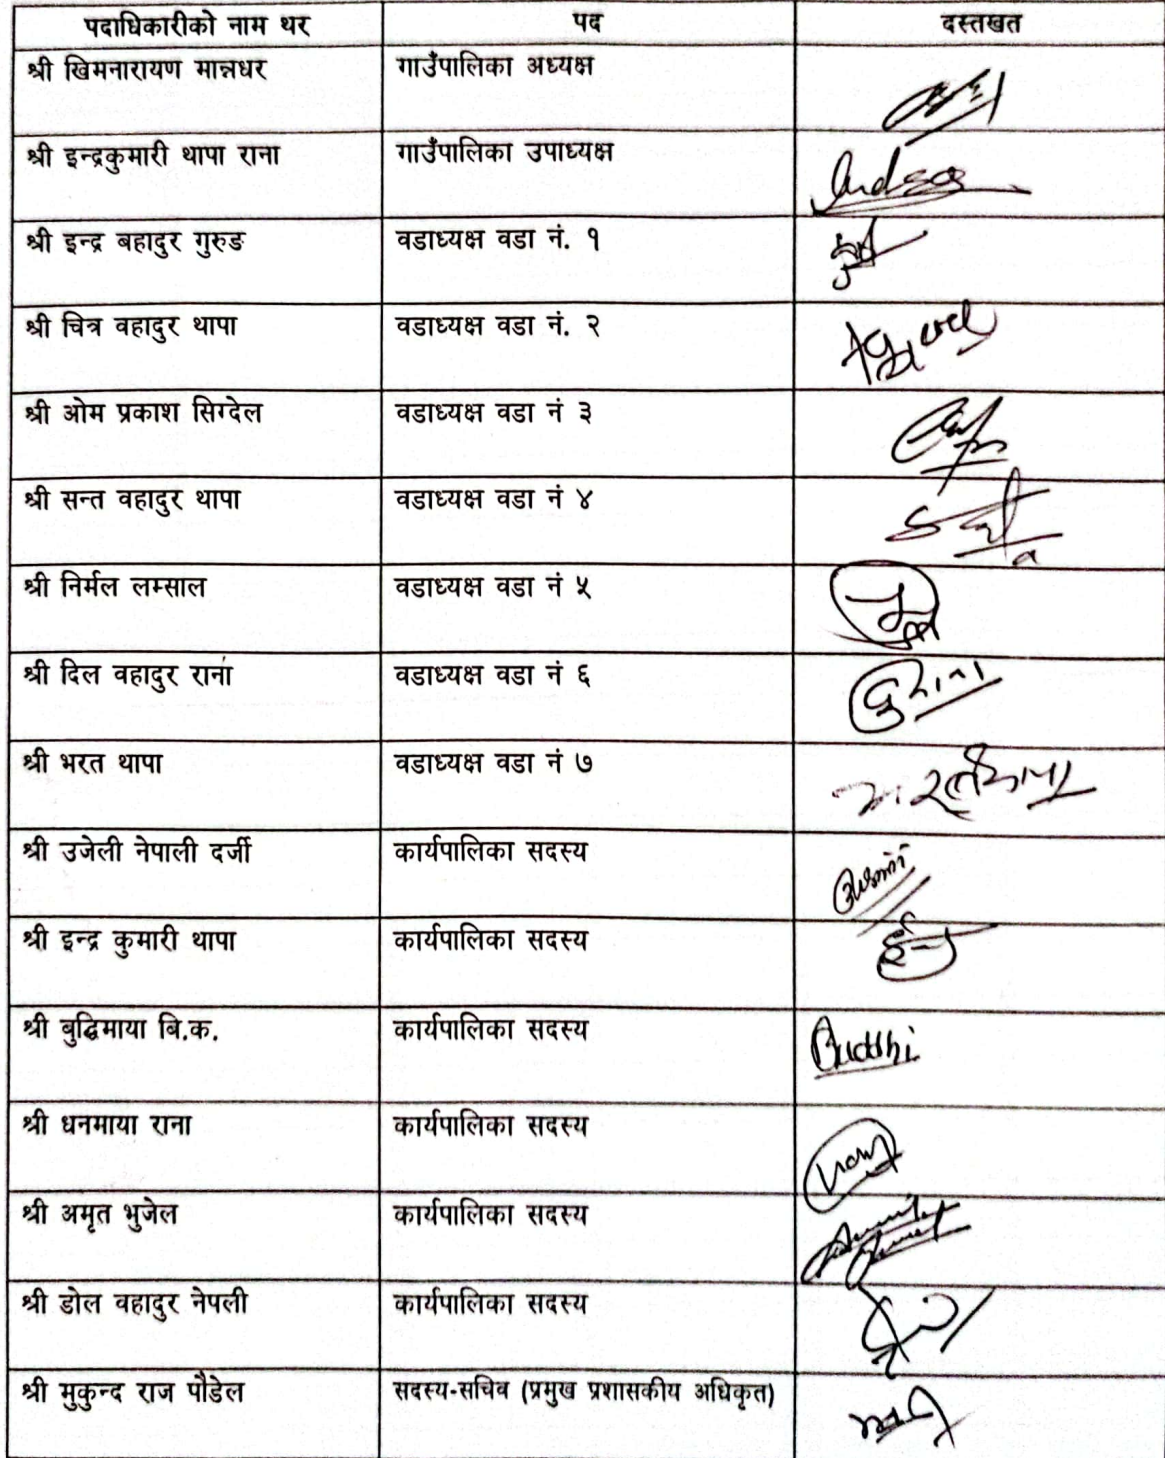 पदाधिकारीको नाम थर पद दस्तखत
श्री खिमनारायण मान्नधर गाउँपालिका अध्यक्ष
श्री इन्द्रकुमारी थापा राना गाउँपालिका उपाध्यक्ष
श्री इन्द्र बहादुर गुरुङ वडाध्यक्ष वडा नं. १
श्री चित्र वहादुर थापा वडाध्यक्ष वडा नं. २
श्री ओम प्रकाश सिग्देल वडाध्यक्ष वडा नं ३
श्री सन्त वहादुर थापा वडाध्यक्ष वडा नं ४
श्री निर्मल लम्साल वडाध्यक्ष वडा नं ५
श्री दिल वहादुर राना वडाध्यक्ष वडा नं ६
श्री भरत थापा वडाध्यक्ष वडा नं ७
श्री उजेली नेपाली दर्जी कार्यपालिका सदस्य
श्री इन्द्र कुमारी थापा कार्यपालिका सदस्य
श्री बुद्धिमाया बि.क. कार्यपालिका सदस्य Buddhi
श्री धनमाया राना कार्यपालिका सदस्य
श्री अमृत भुजेल कार्यपालिका सदस्य
श्री डोल वहादुर नेपली कार्यपालिका सदस्य
श्री मुकुन्द राज पौडेल सदस्य-सचिव (प्रमुख प्रशासकीय अधिकृत)